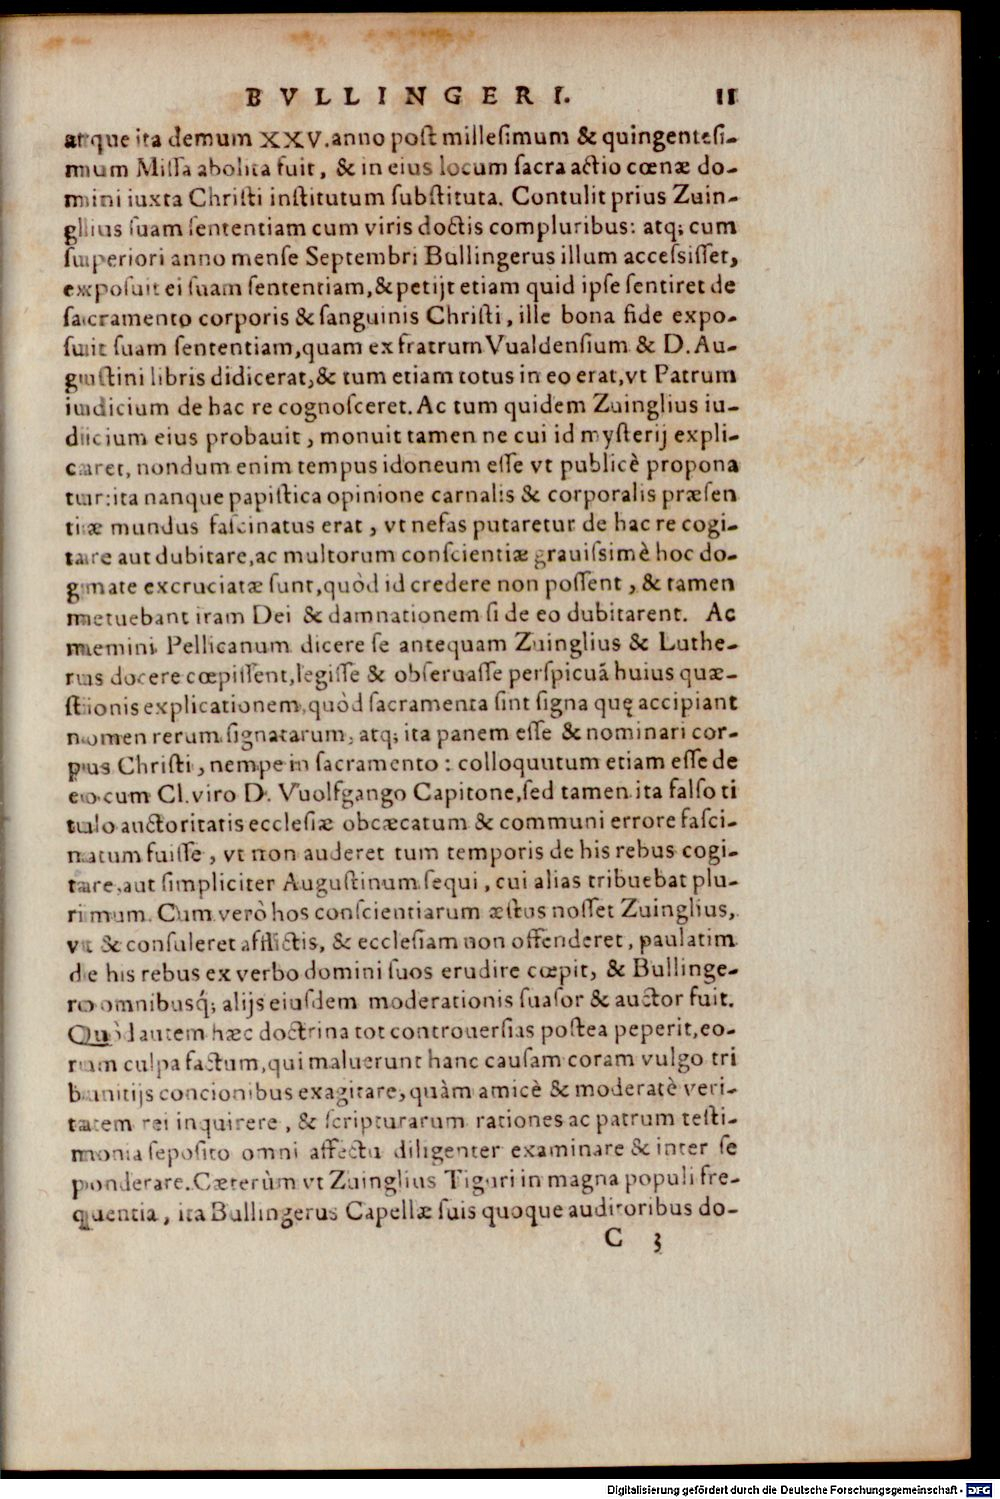 BVLLINGERI. 11
atque ita demum XXV. anno post millesimum & quingentesi-
mum Missa abolita fuit, & in eius locum sacra actio cœnæ do-
mini iuxta Christi institutum substituta. Contulit prius Zuin-
glius suam sententiam cum viris doctis compluribus: atq; cum
superiori anno mense Septembri Bullingerus illum accessisset,
exposuit ei suam sententiam, & petijt etiam quid ipse sentiret de
sacramento corporis & sanguinis Christi, ille bona fide expo-
suit suam sententiam, quam ex fratrum Vualdensium & D. Au-
gustini libris didicerat, & tum etiam totus in eo erat, vt Patrum
iudicium de hac re cognosceret. Ac tum quidem Zuinglius iu-
dicium eius probauit, monuit tamen ne cui id mysterij expli-
caret, nondum enim tempus idoneum esse vt publicè propona
tur: ita nanque papistica opinione carnalis & corporalis præsen
tiæ mundus fascinatus erat, vt nefas putaretur de hac re cogi-
tare aut dubitare, ac multorum conscientiæ grauissimè hoc do-
gmate excruciatæ sunt, quòd id credere non possent, & tamen
metuebant iram Dei & damnationem si de eo dubitarent. Ac
memini Pellicanum dicere se antequam Zuinglius & Luthe-
rus docere cœpissent, legisse & obseruasse perspicuã huius quæ-
stionis explicationem, quòd sacramenta sint signa quę accipiant
nomen rerum signatarum, atq; ita panem esse & nominari cor-
pus Christi, nempe in sacramento: colloquutum etiam esse de
eo cum Cl. viro D. Vuolfgango Capitone, sed tamen ita falso ti
tulo auctoritatis ecclesiæ obcæcatum & communi errore fasci-
natum fuisse, vt non auderet tum temporis de his rebus cogi-
tare, aut simpliciter Augustinum sequi, cui alias tribuebat plu-
rimum. Cum verò hos conscientiarum æstus nosset Zuinglius,
vt & consuleret afflictis, & ecclesiam non offenderet, paulatim
de his rebus ex verbo domini suos erudire cœpit, & Bullinge-
ro omnibusq́; alijs eiusdem moderationis suasor & auctor fuit.
Quòd autem hæc doctrina tot controuersias postea peperit, eo-
rum culpa factum, qui maluerunt hanc causam coram vulgo tri
bunitijs concionibus exagitare, quàm amicè & moderatè veri-
tatem rei inquirere, & scripturarum rationes ac patrum testi-
monia seposito omni affectu diligenter examinare & inter se
ponderare. Cæterùm vt Zuinglius Tiguri in magna populi fre-
quentia, ita Bullingerus Capellæ suis quoque auditoribus do-
C 3
Digitalisierung gefördert durch die Deutsche Forschungsgemeinschaft - DFG